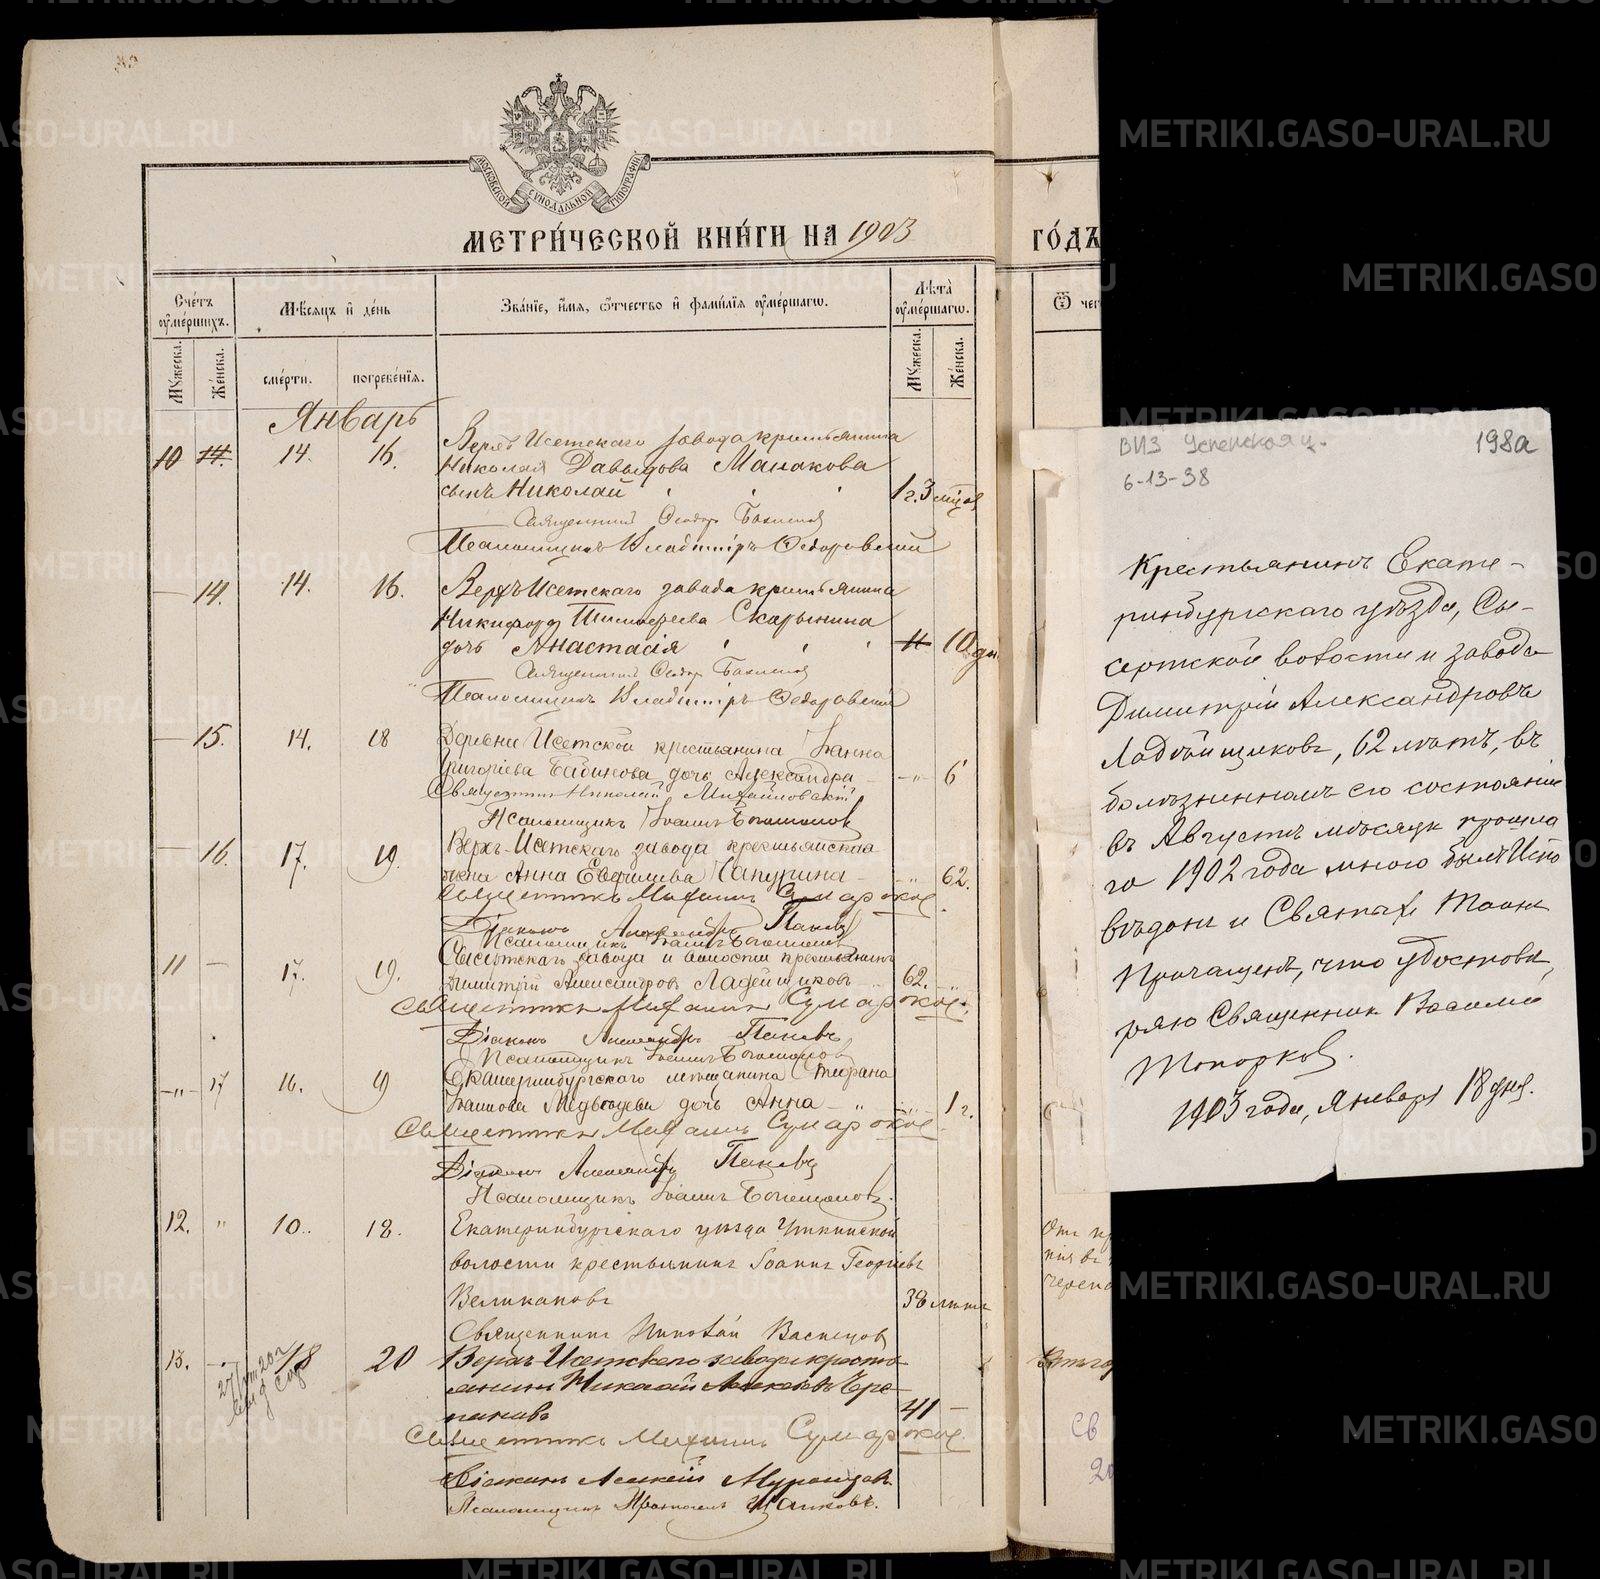 МОСКОВСКОЙ СУНОДАЛЬНОЙ ТИПОГРАФІИ
МЕТРИ́ЧЕСКОЙ КНИ́ГИ НА 1903 ГО́ДЪ
Сче́тъ ᲂу҆ме́ршихъ.
Мѣ́сяцъ и҆ де́нь
Зва́нїе, и҆́мя, ѻ҆́тчество и҆ фами́лїя ᲂу҆ме́ршагѡ.
Лѣ́та ᲂу҆ме́ршагѡ.
Ѿ чег
Мꙋ́жеска.
Же́нска.
сме́рти.
погребе́нїя.
Мꙋ́жеска.
Же́нска.
Январь
10 14. 14. 16. Верхъ Исетскаго завода крестьянина
Николая Давыдова Манакова
сынъ Николай 1 г. 3 мѣсяц
Священникъ Феодоръ
Псаломщикъ Владиміръ Федоровскій
14. 14. 16. Верхъ Исетскаго завода крестьянина
Никифора Тимофеева Скарынина
дочь Анастасія 11 10 дн.
Священникъ Феодоръ
Псаломщикъ Владиміръ Федоровскій
15. 14. 18 Деревни Исетской крестьянина Іоанна
Григоріева Бабинова дочь Александра 6
Священникъ Николай Михайловскій
Псаломщикъ Іоаннъ Богомоловъ
16. 17. 19. Верхъ-Исетскаго завода крестьянская
жена Анна Евфимева Чапурина 62.
Священникъ Михаилъ Сумароковъ.
Діаконъ Александръ Пановъ
Псаломщикъ Іоаннъ Богомоловъ
11 17. 19. Сысертскаго завода и волости крестьянинъ
Димитрій Александровъ Ладейщиковъ 62.
Священникъ Михаилъ Сумароковъ.
Діаконъ Александръ Пановъ
Псаломщикъ Іоаннъ Богомоловъ
17 16. 19 Екатеринбургскаго мѣщанина Стефана
Іоаннова Медведева дочь Анна 1 г.
Священникъ Михаилъ Сумароковъ.
Діаконъ Александръ Пановъ
Псаломщикъ Іоаннъ Богомоловъ.
12. 10. 18. Екатеринбургскаго уѣзда Уткинской
волости крестьянинъ Іоаннъ Георгіевъ
Великановъ 38 лѣтъ
Священникъ Николай Васнецов
13. 18 20 Верхъ Исетскаго завода кресть-
янинъ Николай Алексіевъ Чре-
пановъ 41
Священникъ Михаилъ Сумароковъ.
Діаконъ Алексій
Псаломщикъ
ВИЗ Успенская ц.
6-13-38
198а
Крестьянинъ Екате-
ринбургскаго уѣзда, Сы-
сертской волости и завода
Димитрій Александровъ
Ладейщиковъ, 62 лѣтъ, въ
болѣзненномъ его состояніи
въ Августѣ мѣсяцѣ прошла
го 1902 года мною былъ Испо
вѣданъ и Святыхъ Таинъ
Причащенъ, что удостовѣ,
ряю Священник Василій
Топорков.
1903 года, Января 18 дня.
METRIKI.GASO-URAL.RU